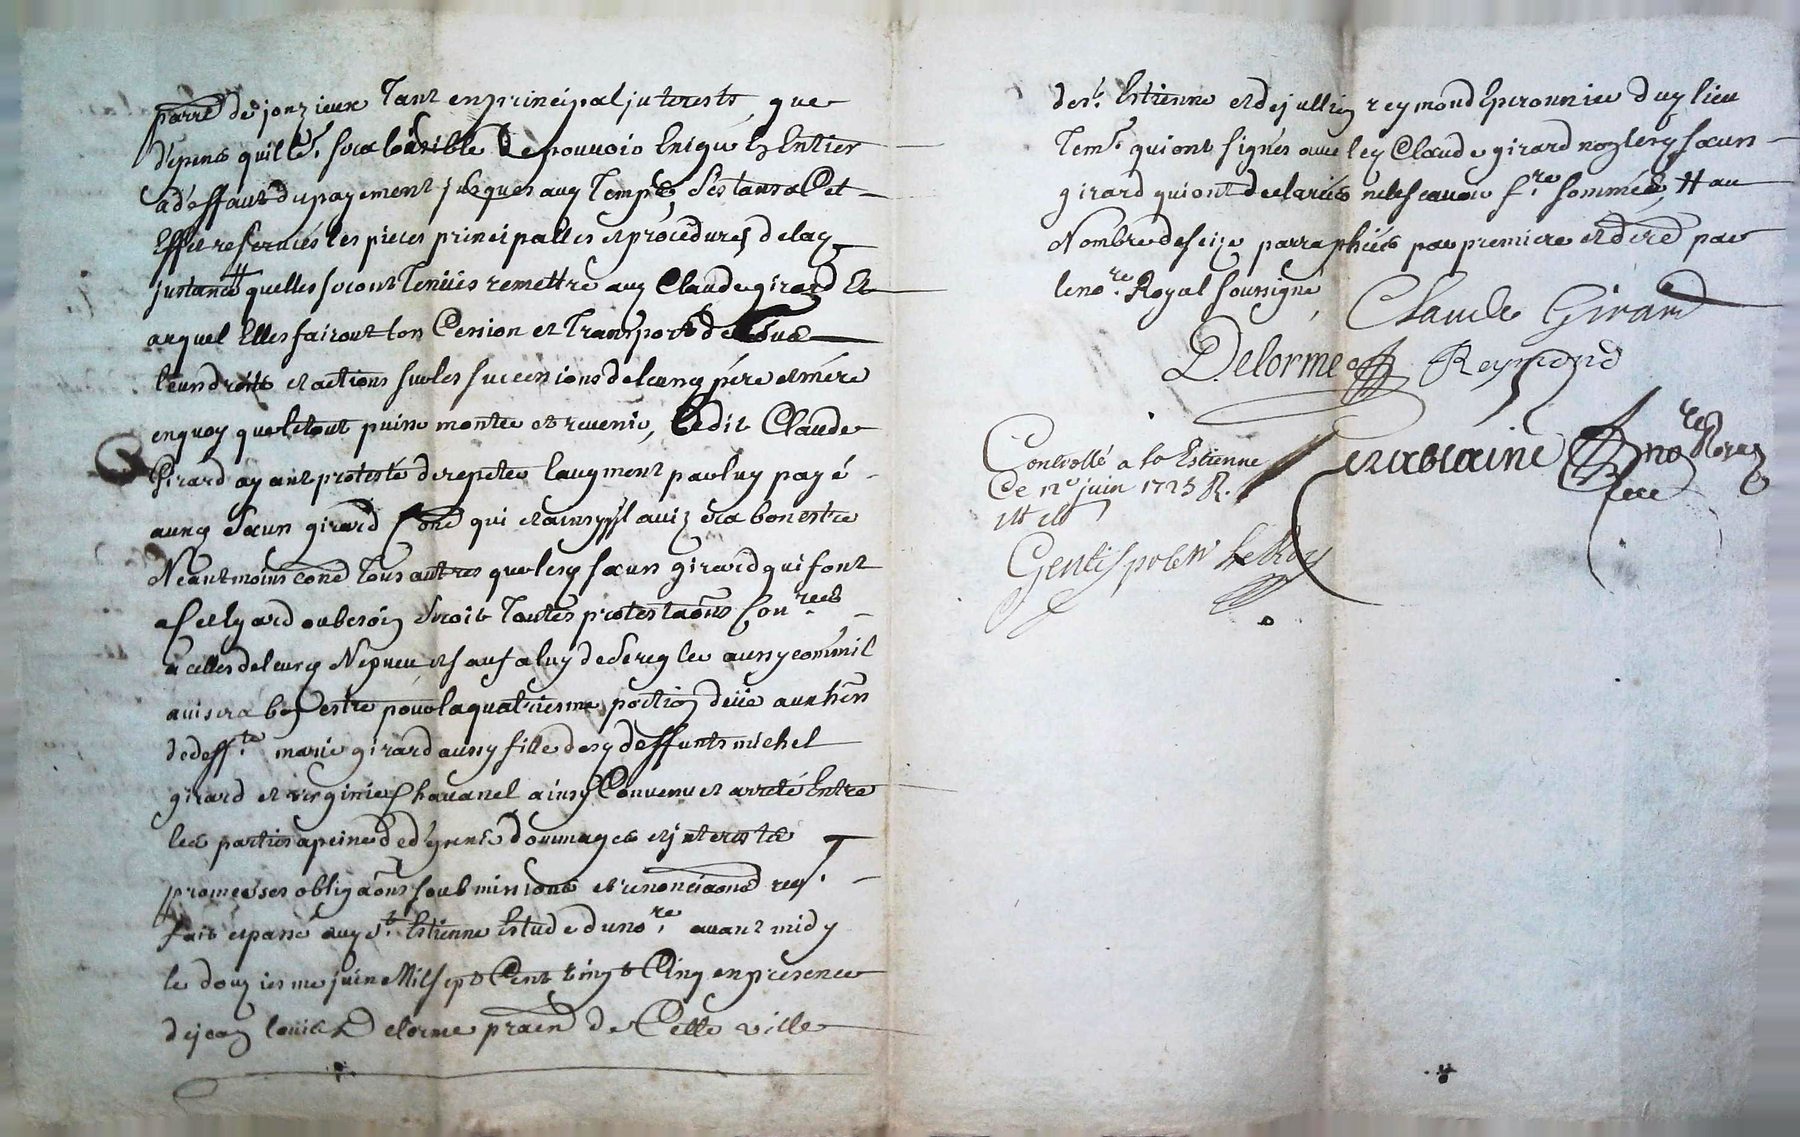 parre de jonzieux Tant en principal jnterests que
d'epens quil le^r. sera loisible De pouvoir Exiger En Entier
a deffaut du payement jusques aux Temps,
Effet refermées les pieces principalles et procedures de lad
jnstance quelles seront Tenües remettre aud Claude girard Et
auquel Elles fairont lors Cession et Transport de Tous
leurs droits et actions sur les successions de leursd pére et mére
en quoy que le tout puisse monter et revenir, Ledit Claude
Girard ayant protesté de repeter laugment par luy payé
auxd Sœurs girard qui et ainsy qu'il avizera bon estre
Neantmoins Tous autres que lesd sœurs girard qui font
a cet Egard ou besoin Seroit Toutes protestaons Con^res
a celles de leurd Nepveu et sauf a luy de Se regler aussy comm'il
avisera bon estre pour la quatriesme portion deüe aux hers
de deff^te. marie girard aussy fille desd deffunts michel
girard et virginie Chavanel ainsy Convenu et arreté Entre
les parties a peine de dépens Dommages et jnterests
promesses obligaons soubmissions et renonciaons req^t.
fait et passé aud s^t. Estienne Estude du no^re. avant midy
le douziesme juin Mil sept Cent vingt Cinq en presence
de jean loüis Delorme pratn de Cette ville
de s^t. Estienne et de jullien reymond Eperonnier dud lieu
Tem^s. qui ont signés avec led Claude girard non lesd sœurs
girard qui ont declarées ne le scavoir f^re. sommées, # au
Nombre de seize parraphées par premiere et der^e par
le no^re. Royal soussigné
Claude Girard
Delorme Reymond
no^re Royal
Controllé a S^t Estienne
Ce 12^e juin 1725 R.
Gentispretm LeRoy